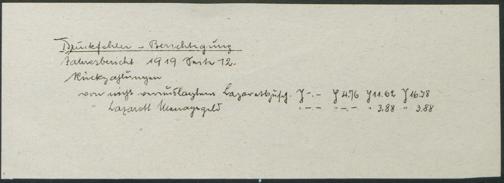 Druckfehler - Berichtigung
Jahresbericht 1919 Seite 12.
Rückzahlungen
von nicht verauslagtem Lazarettzusch. M -.- M 4.76 M 11.62 M 16.78
" Lazarett Menagegeld " -.- " -.- " 3.88 " 3.88